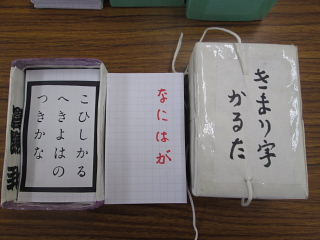 きまり字
かるた
なにはが
こひしかる
へきよはの
つきかな